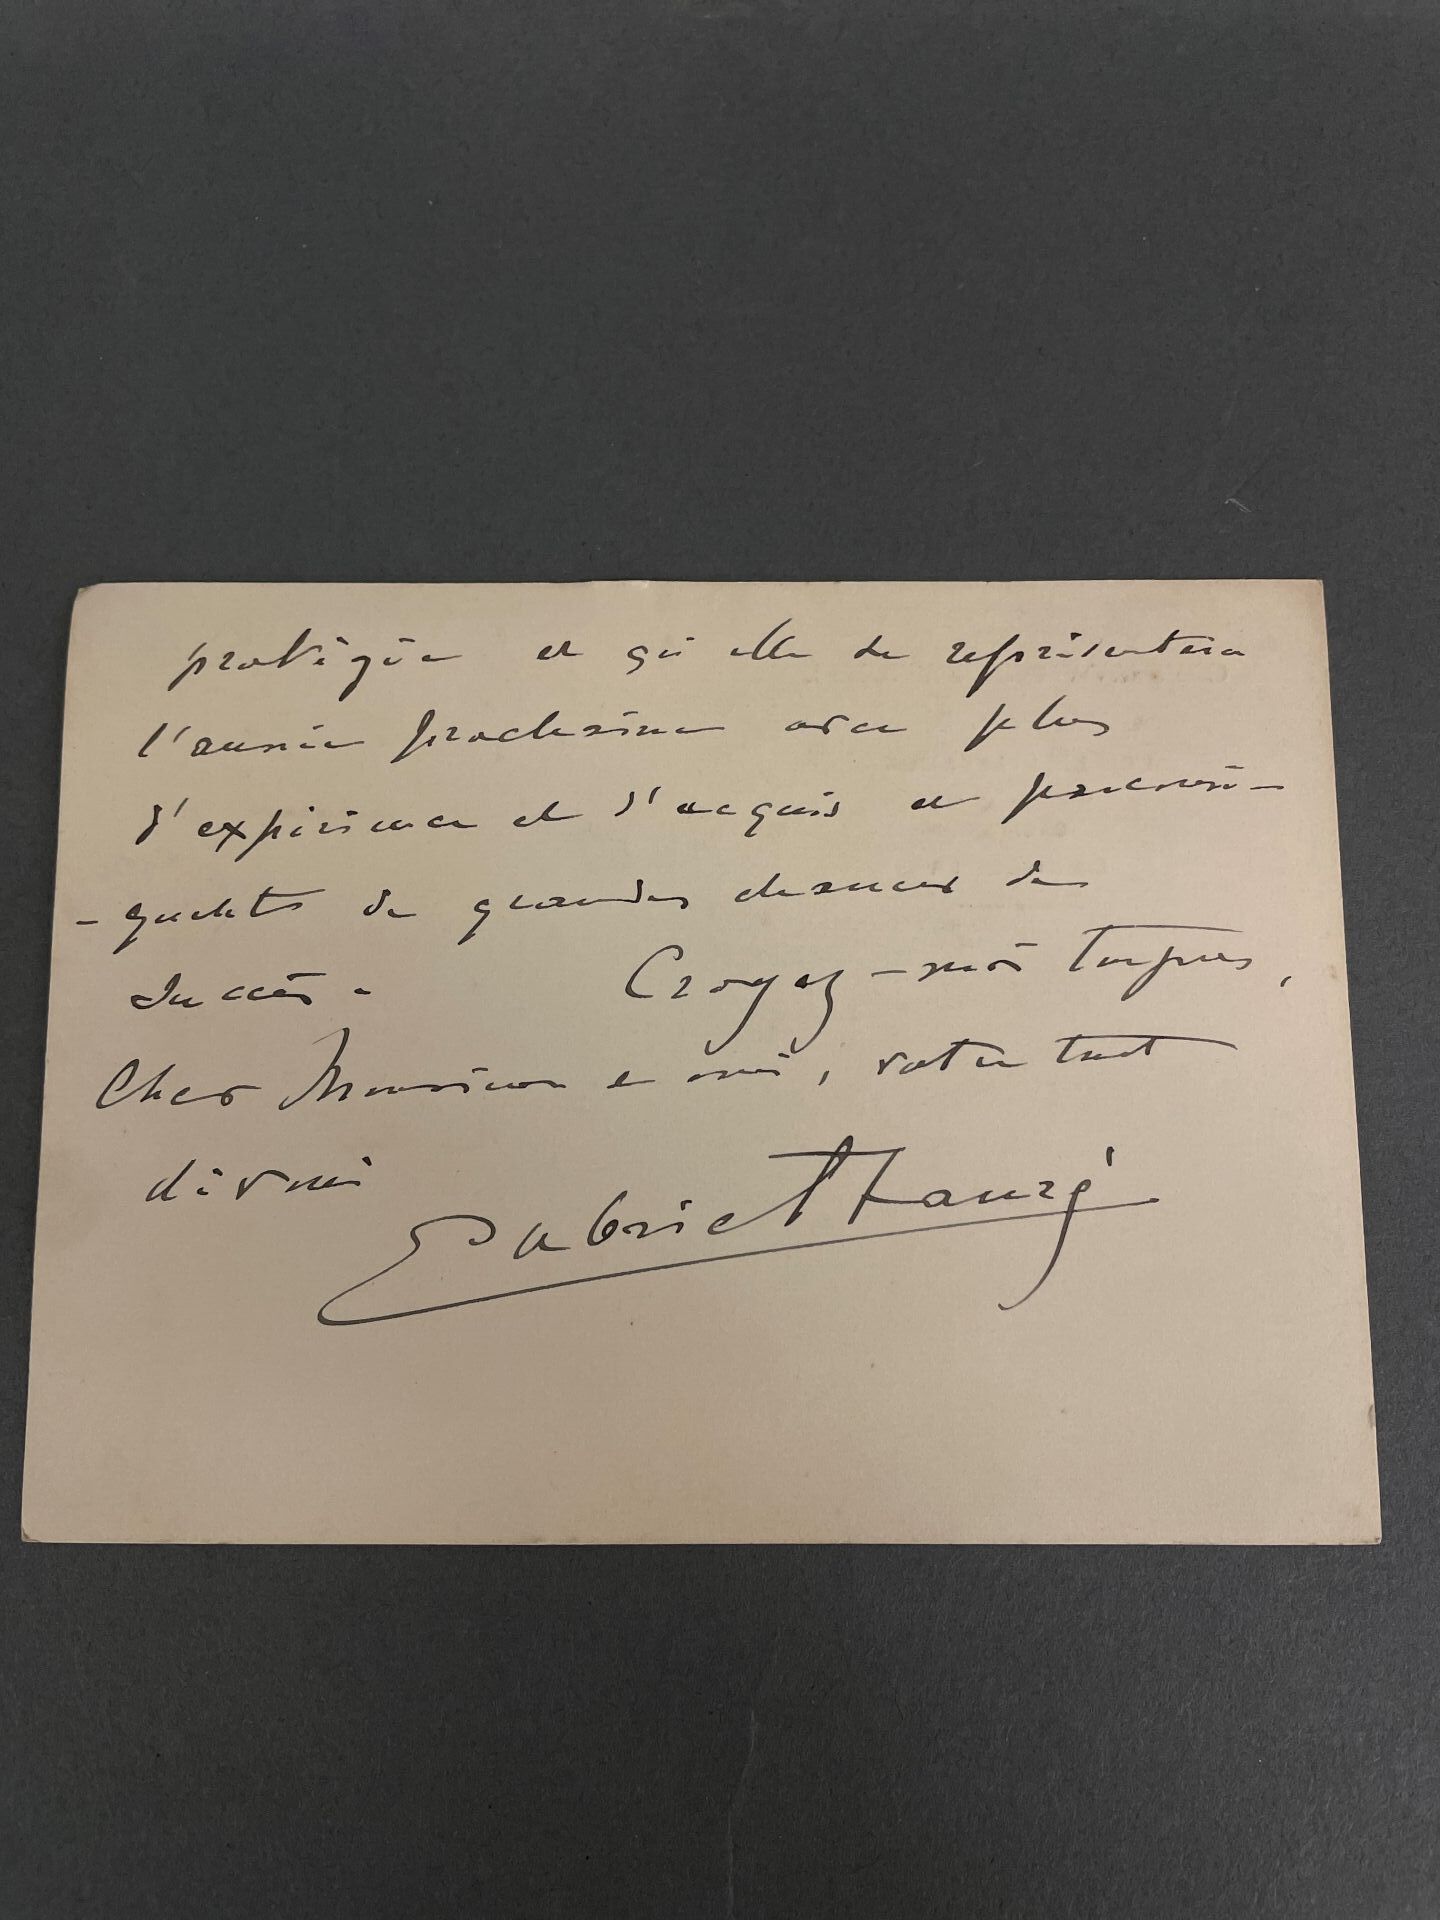 protégée et qu'elle se représentera
l'année prochaine avec plus
d'expérience et d'acquis et par consé-
-quent de grandes chances de
succès.   Croyez-moi toujours,
Cher Monsieur et ami, votre tout
dévoué
Gabriel Fauré